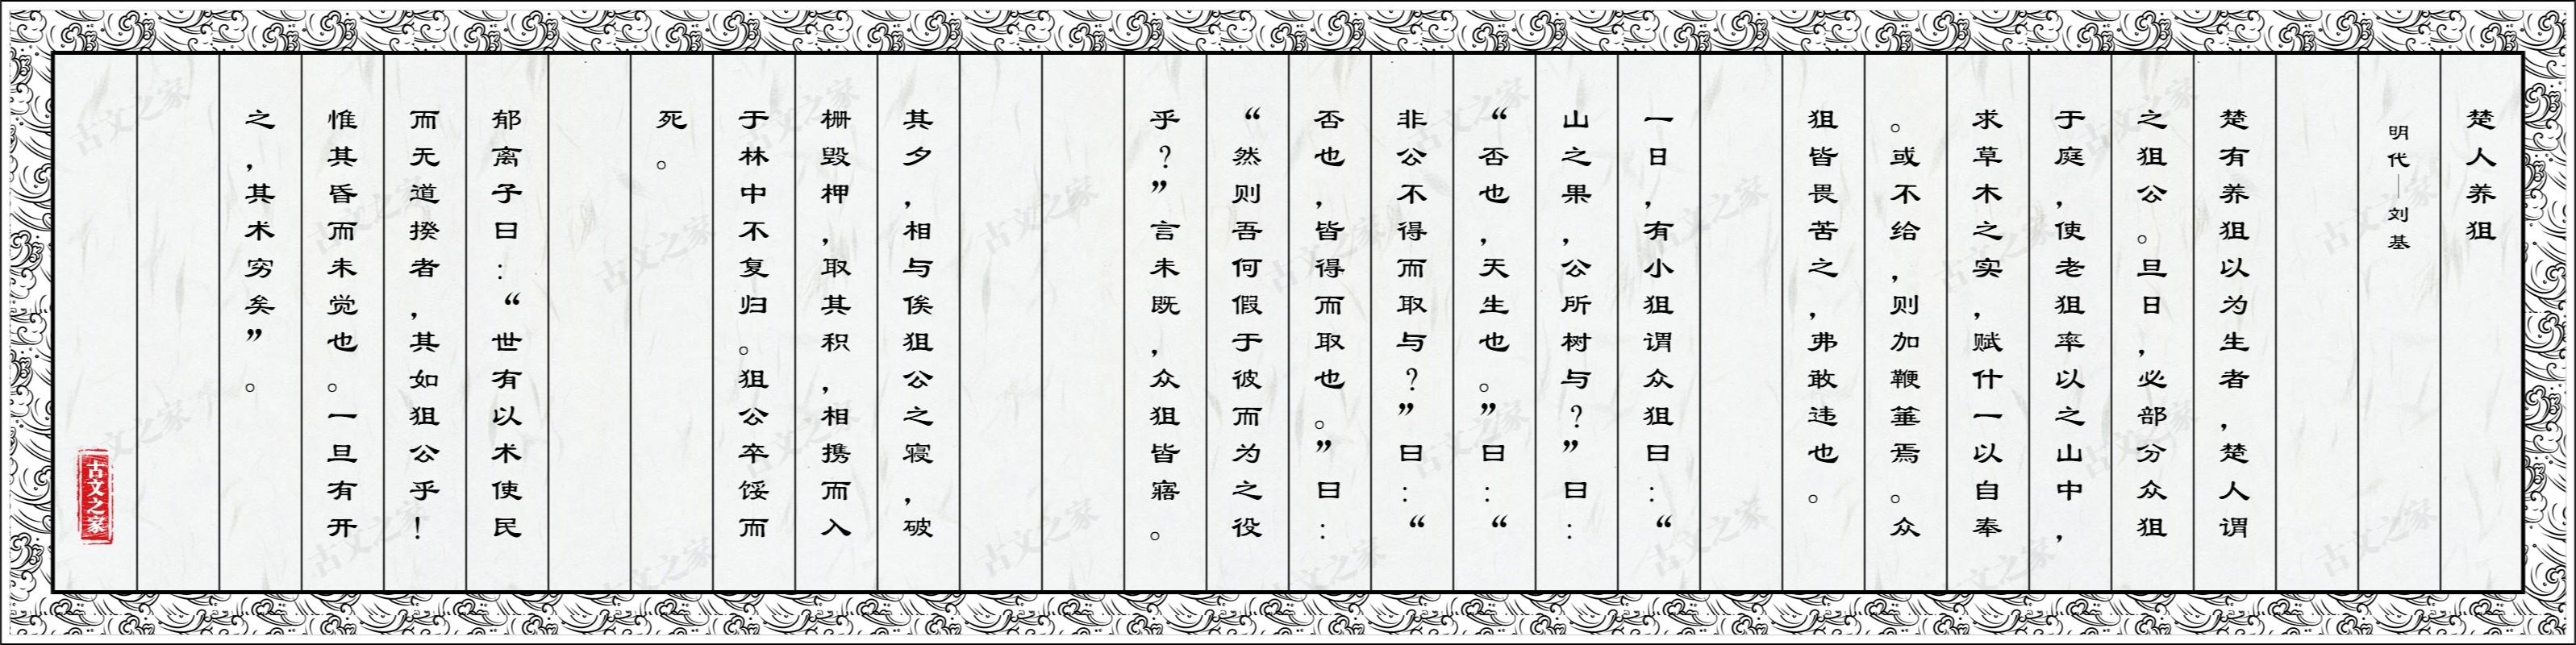 楚人养狙
明代—刘基
楚有养狙以为生者，楚人谓
之狙公。旦日，必部分众狙
于庭，使老狙率以之山中，
求草木之实，赋什一以自奉
。或不给，则加鞭箠焉。众
狙皆畏苦之，弗敢违也。
一日，有小狙谓众狙曰：“
山之果，公所树与？”曰：
“否也，天生也。”曰：“
非公不得而取与？”曰：“
否也，皆得而取也。”曰：
“然则吾何假于彼而为之役
乎？”言未既，众狙皆寤。
其夕，相与俟狙公之寝，破
栅毁柙，取其积，相携而入
于林中不复归。狙公卒馁而
死。
郁离子曰：“世有以术使民
而无道揆者，其如狙公乎！
惟其昏而未觉也。一旦有开
之，其术穷矣”。
古文之家